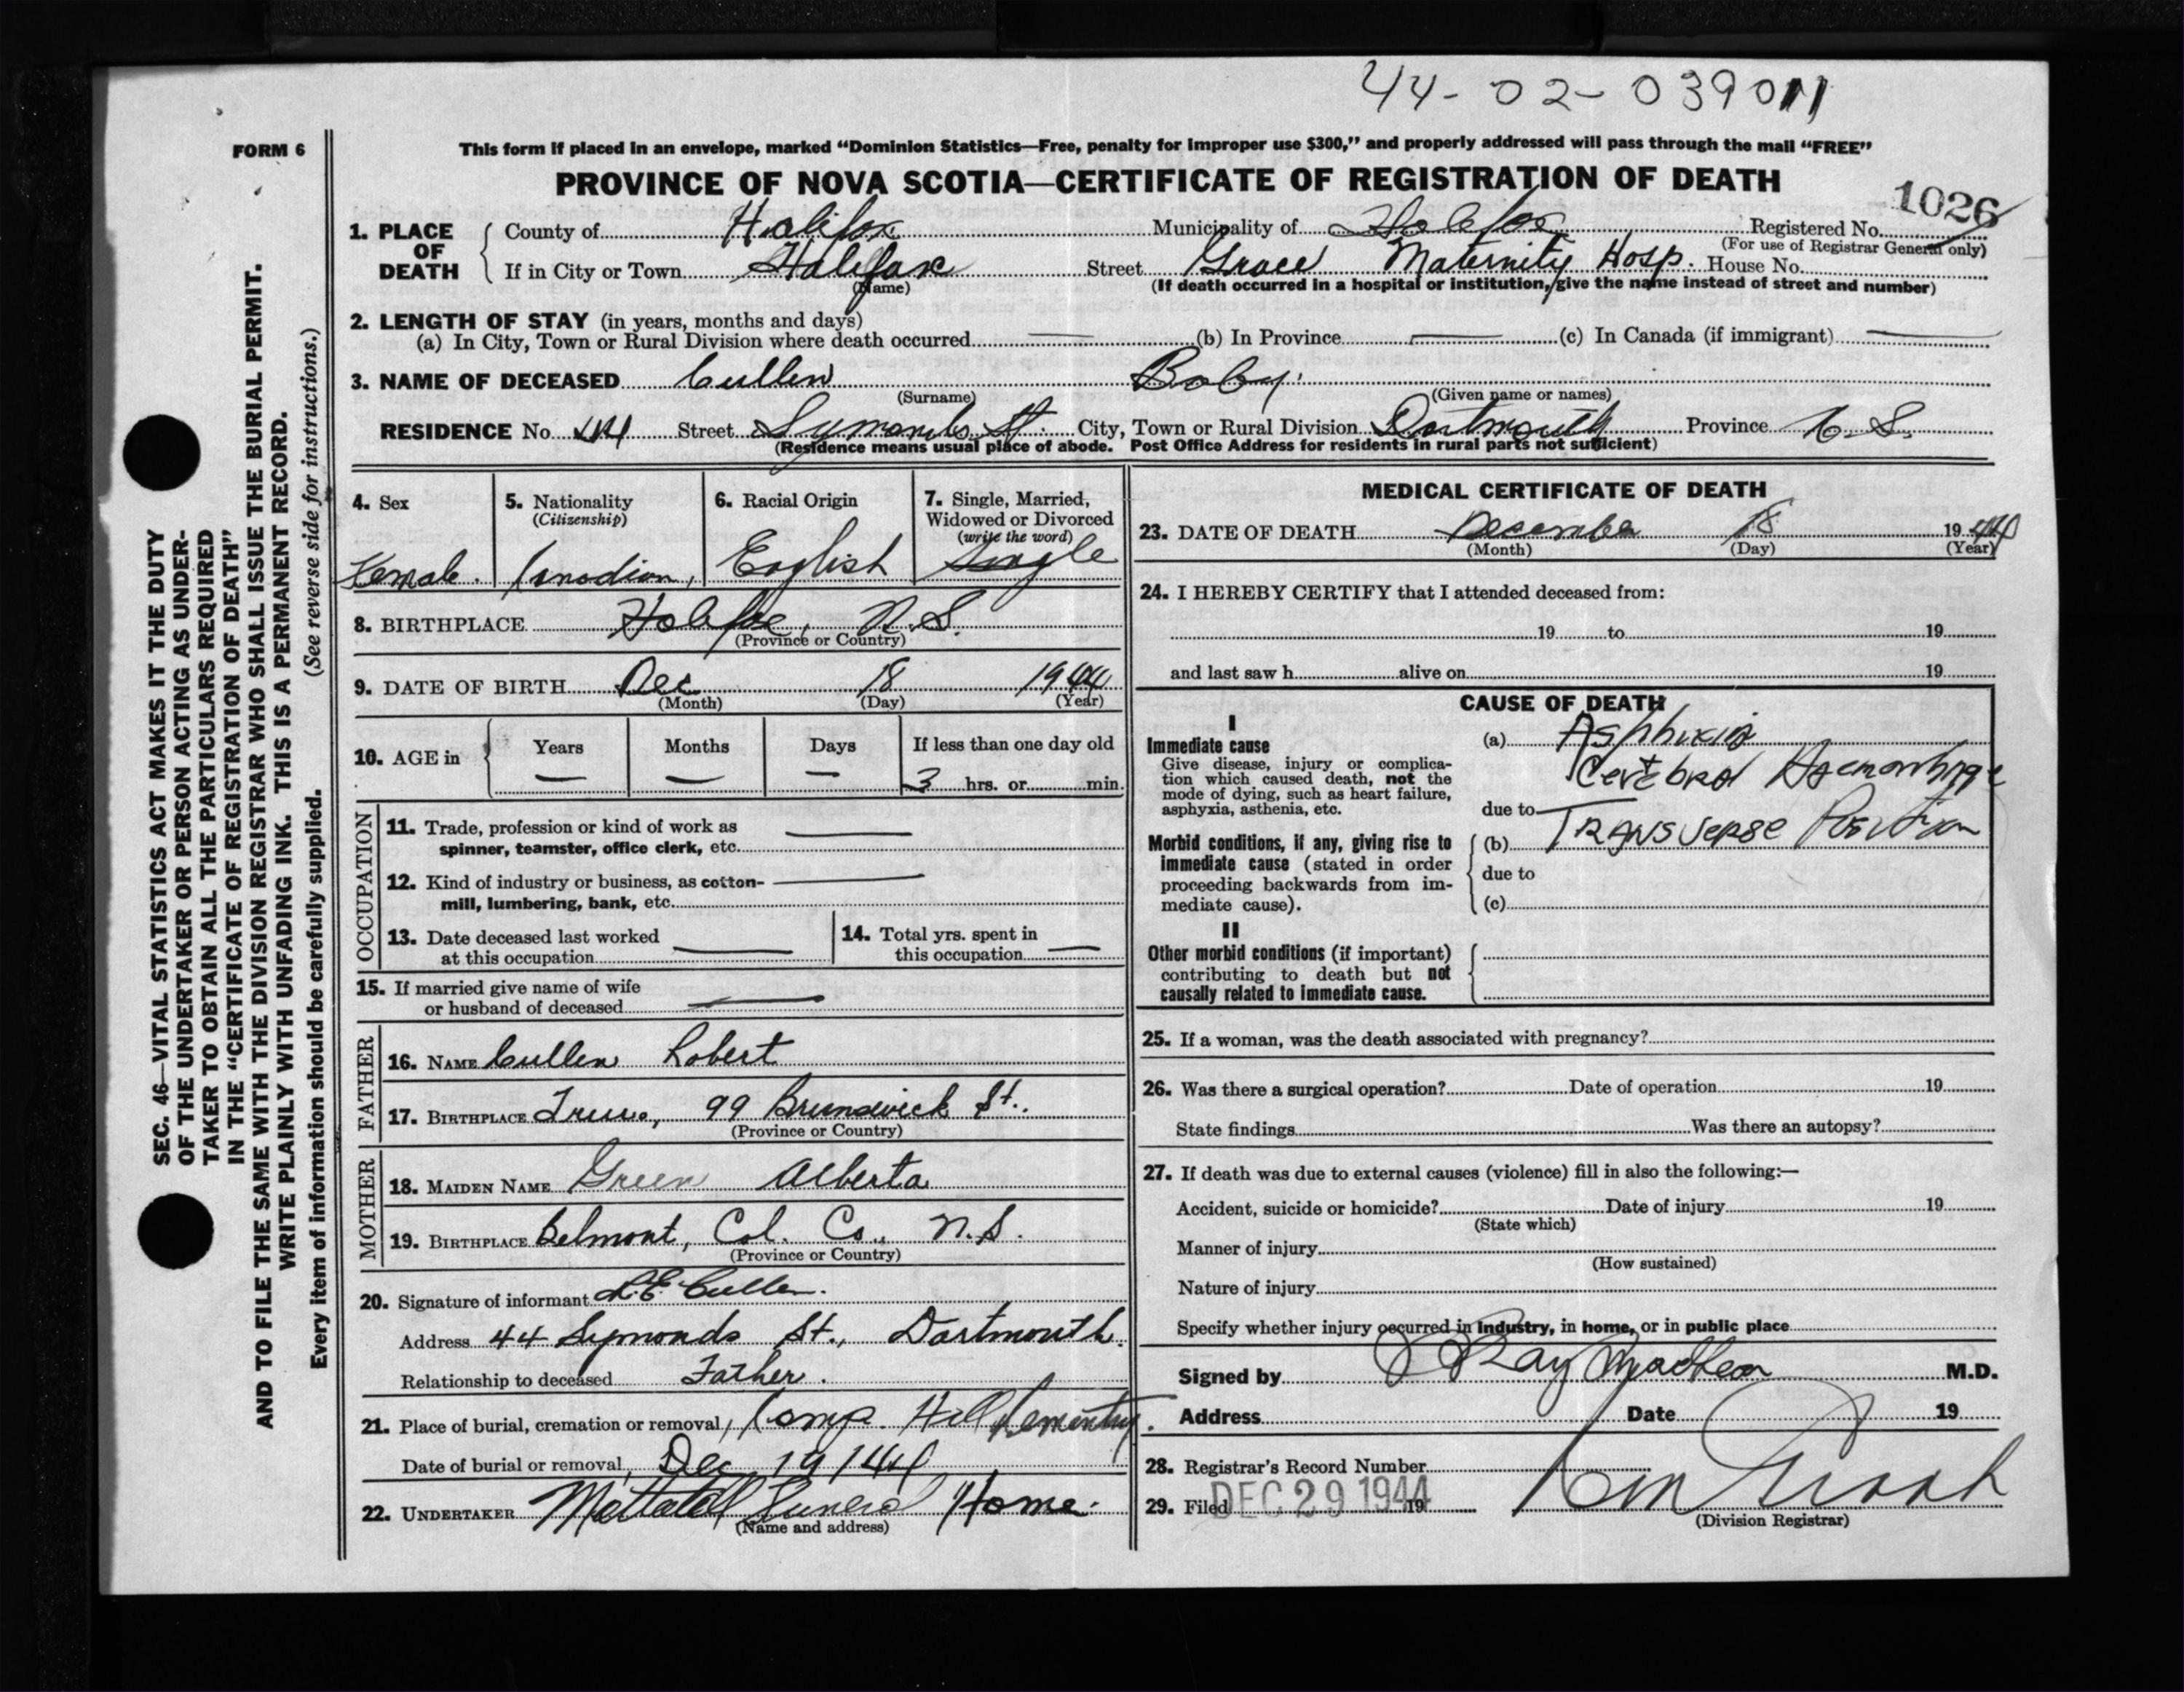 44-02-039011
FORM 6
This form if placed in an envelope, marked “Dominion Statistics—Free, penalty for improper use $300,” and properly addressed will pass through the mail “FREE”
PROVINCE OF NOVA SCOTIA—CERTIFICATE OF REGISTRATION OF DEATH
1026
1. PLACE OF DEATH County of Halifax Municipality of Halifax Registered No.
(For use of Registrar General only)
If in City or Town Halifax Street Grace Maternity Hosp. House No.
(Name) (If death occurred in a hospital or institution, give the name instead of street and number)
2. LENGTH OF STAY (in years, months and days)
(a) In City, Town or Rural Division where death occurred — (b) In Province — (c) In Canada (if immigrant) —
3. NAME OF DECEASED Cullen Baby.
(Surname) (Given name or names)
RESIDENCE No. 44 Street Symonds St. City, Town or Rural Division Dartmouth Province N.S.
(Residence means usual place of abode. Post Office Address for residents in rural parts not sufficient)
4. Sex 5. Nationality 6. Racial Origin 7. Single, Married,
(Citizenship) Widowed or Divorced
(write the word)
Female. Canadian, English Single
8. BIRTHPLACE Halifax, N.S.
(Province or Country)
9. DATE OF BIRTH Dec 18 1944
(Month) (Day) (Year)
10. AGE in Years Months Days If less than one day old
— — — 3 hrs. or min.
OCCUPATION
11. Trade, profession or kind of work as —
spinner, teamster, office clerk, etc.
12. Kind of industry or business, as cotton- —
mill, lumbering, bank, etc.
13. Date deceased last worked — 14. Total yrs. spent in
at this occupation this occupation —
15. If married give name of wife
or husband of deceased —
FATHER
16. NAME Cullen Robert
17. BIRTHPLACE Truro, 99 Brunswick St.
(Province or Country)
MOTHER
18. MAIDEN NAME Green Alberta
19. BIRTHPLACE Belmont, Col. Co., N.S.
(Province or Country)
20. Signature of informant R.E. Cullen.
Address 44 Symonds St., Dartmouth.
Relationship to deceased Father.
21. Place of burial, cremation or removal, Camp Hill Cementry.
Date of burial or removal, Dec 19/44
22. UNDERTAKER Mattatall Funeral Home.
(Name and address)
MEDICAL CERTIFICATE OF DEATH
23. DATE OF DEATH December 18 1944
(Month) (Day) (Year)
24. I HEREBY CERTIFY that I attended deceased from:
19 to 19
and last saw h alive on 19
CAUSE OF DEATH
I
Immediate cause (a) Asphixia
Give disease, injury or complica- Cerebral Haemorrhage
tion which caused death, not the
mode of dying, such as heart failure,
asphyxia, asthenia, etc. due to
Morbid conditions, if any, giving rise to (b) Transverse Position
immediate cause (stated in order
proceeding backwards from im- due to
mediate cause). (c)
II
Other morbid conditions (if important)
contributing to death but not
causally related to immediate cause.
25. If a woman, was the death associated with pregnancy?
26. Was there a surgical operation? Date of operation 19
State findings Was there an autopsy?
27. If death was due to external causes (violence) fill in also the following:—
Accident, suicide or homicide? Date of injury 19
(State which)
Manner of injury
(How sustained)
Nature of injury
Specify whether injury occurred in industry, in home, or in public place
Signed by Ray M.D.
Address Date 19
28. Registrar's Record Number
29. Filed DEC 29 1944 19
(Division Registrar)
SEC. 46—VITAL STATISTICS ACT MAKES IT THE DUTY
OF THE UNDERTAKER OR PERSON ACTING AS UNDER-
TAKER TO OBTAIN ALL THE PARTICULARS REQUIRED
IN THE “CERTIFICATE OF REGISTRATION OF DEATH”
AND TO FILE THE SAME WITH THE DIVISION REGISTRAR WHO SHALL ISSUE THE BURIAL PERMIT.
WRITE PLAINLY WITH UNFADING INK. THIS IS A PERMANENT RECORD.
Every item of information should be carefully supplied. (See reverse side for instructions.)